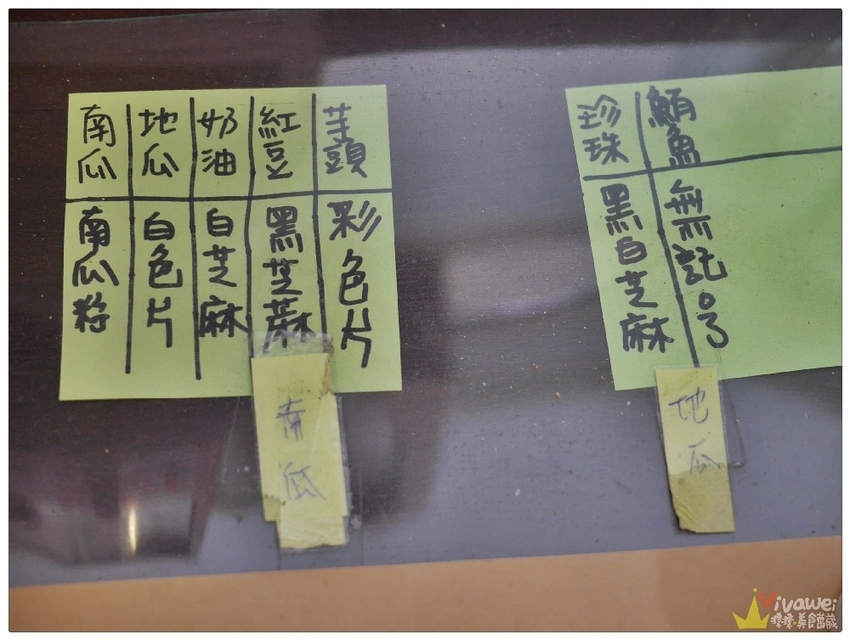 南瓜 地瓜 奶油 紅豆 芋頭
南瓜籽 白色片 白芝麻 黑芝麻 彩色片
珍珠 鮪魚
黑白芝麻 無記号
南瓜
地瓜
Vivawei